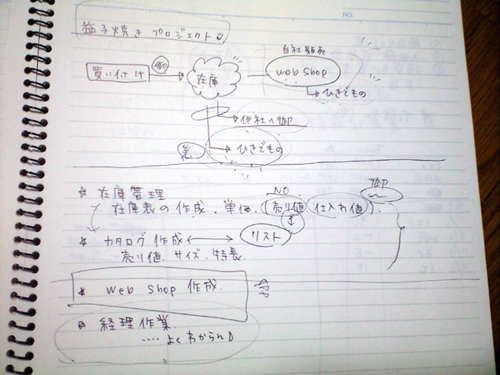 NO.
益子焼き プロジェクト
自社販売
買い付け
卸
在庫
web shop
→ひきでもの
→他社へ卸
→ひきでもの
NO
在庫管理
在庫表の作成、単価、(売り値 仕入れ値)
カタログ作成 ←→ リスト
売り値、サイズ、特長
web shop 作成
経理作業
.... よくわからん